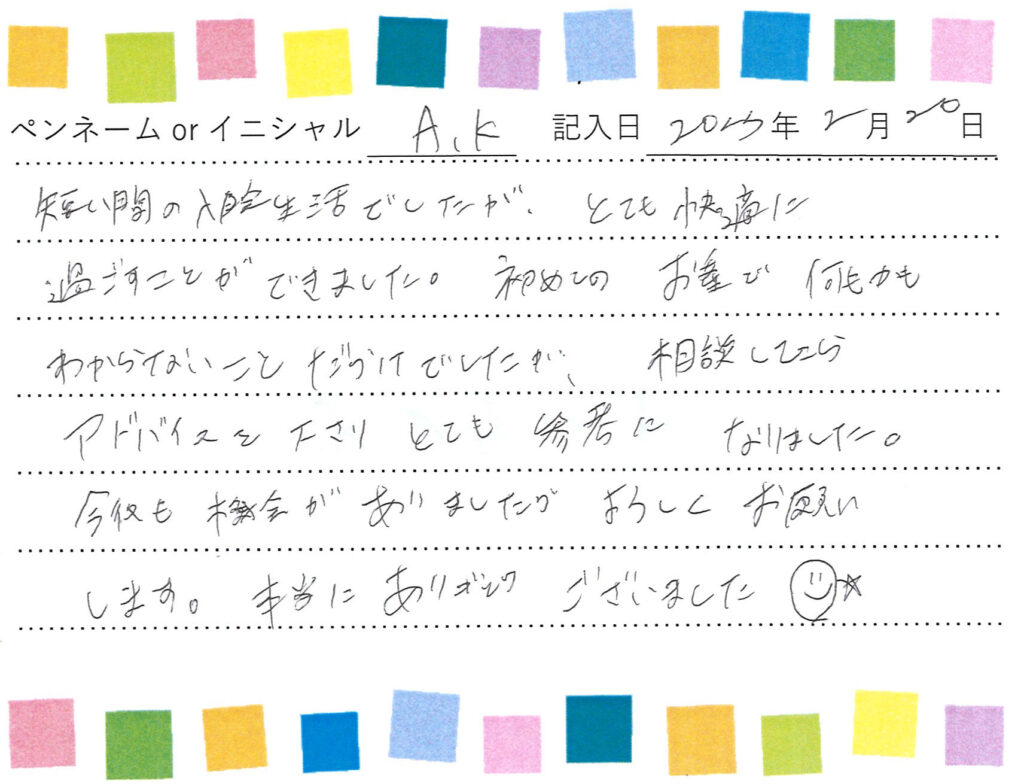 ペンネーム or イニシャル A.K 記入日 2023年 2月 20日
短い間の入院生活でしたが、 とても快適に
過ごすことができました。 初めての お産で 何もかも
わからないこと だらけでしたが、 相談したら
アドバイスを下さり とても 参考に なりました。
今後も 機会が ありましたら よろしく お願い
します。 本当に ありがとう ございました